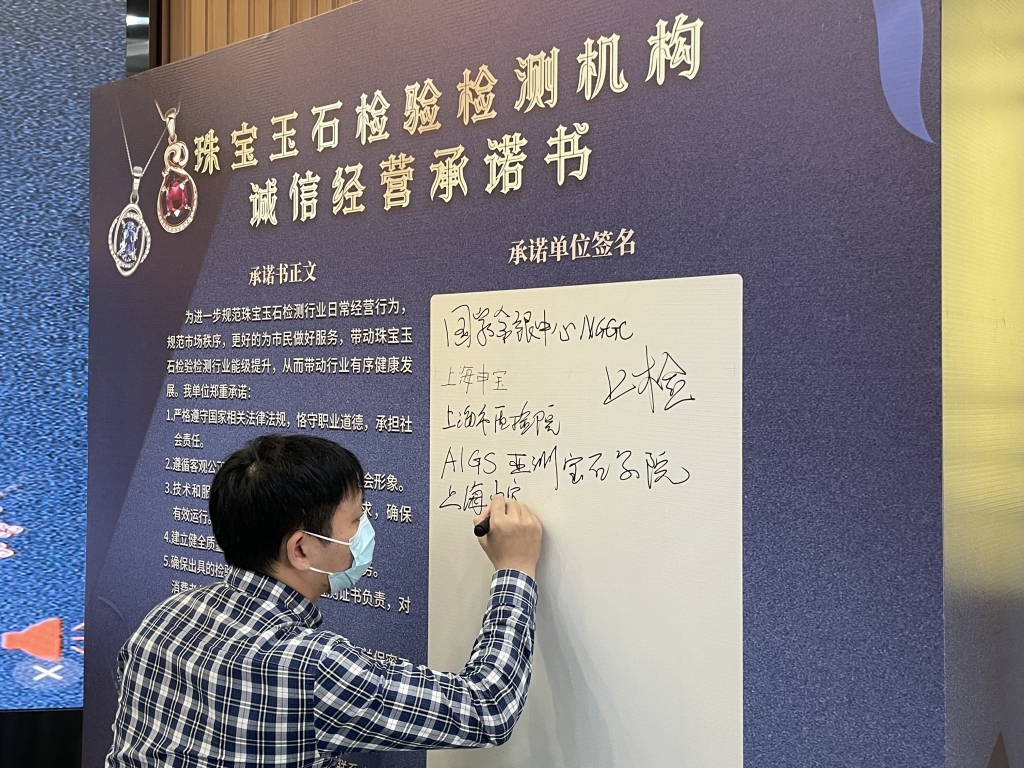 珠宝玉石检验检测机构
诚信经营承诺书
承诺书正文
为进一步规范珠宝玉石检测行业日常经营行为，
规范市场秩序，更好的为市民做好服务，带动珠宝玉
石检验检测行业能级提升，从而带动行业有序健康发
展。我单位郑重承诺：
1.严格遵守国家相关法律法规，恪守职业道德，承担社
会责任。
2.遵循客观公 会形象。
3.技术和服 求，确保
有效运行。
4.建立健全质量 务。
5.确保出具的检验 测证书负责，对
消费者
承诺单位签名
国家金银中心 NGGC
上海申宝
上检
上海市质检院
AIGS 亚洲宝石学院
上海